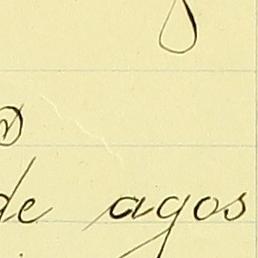 de agos